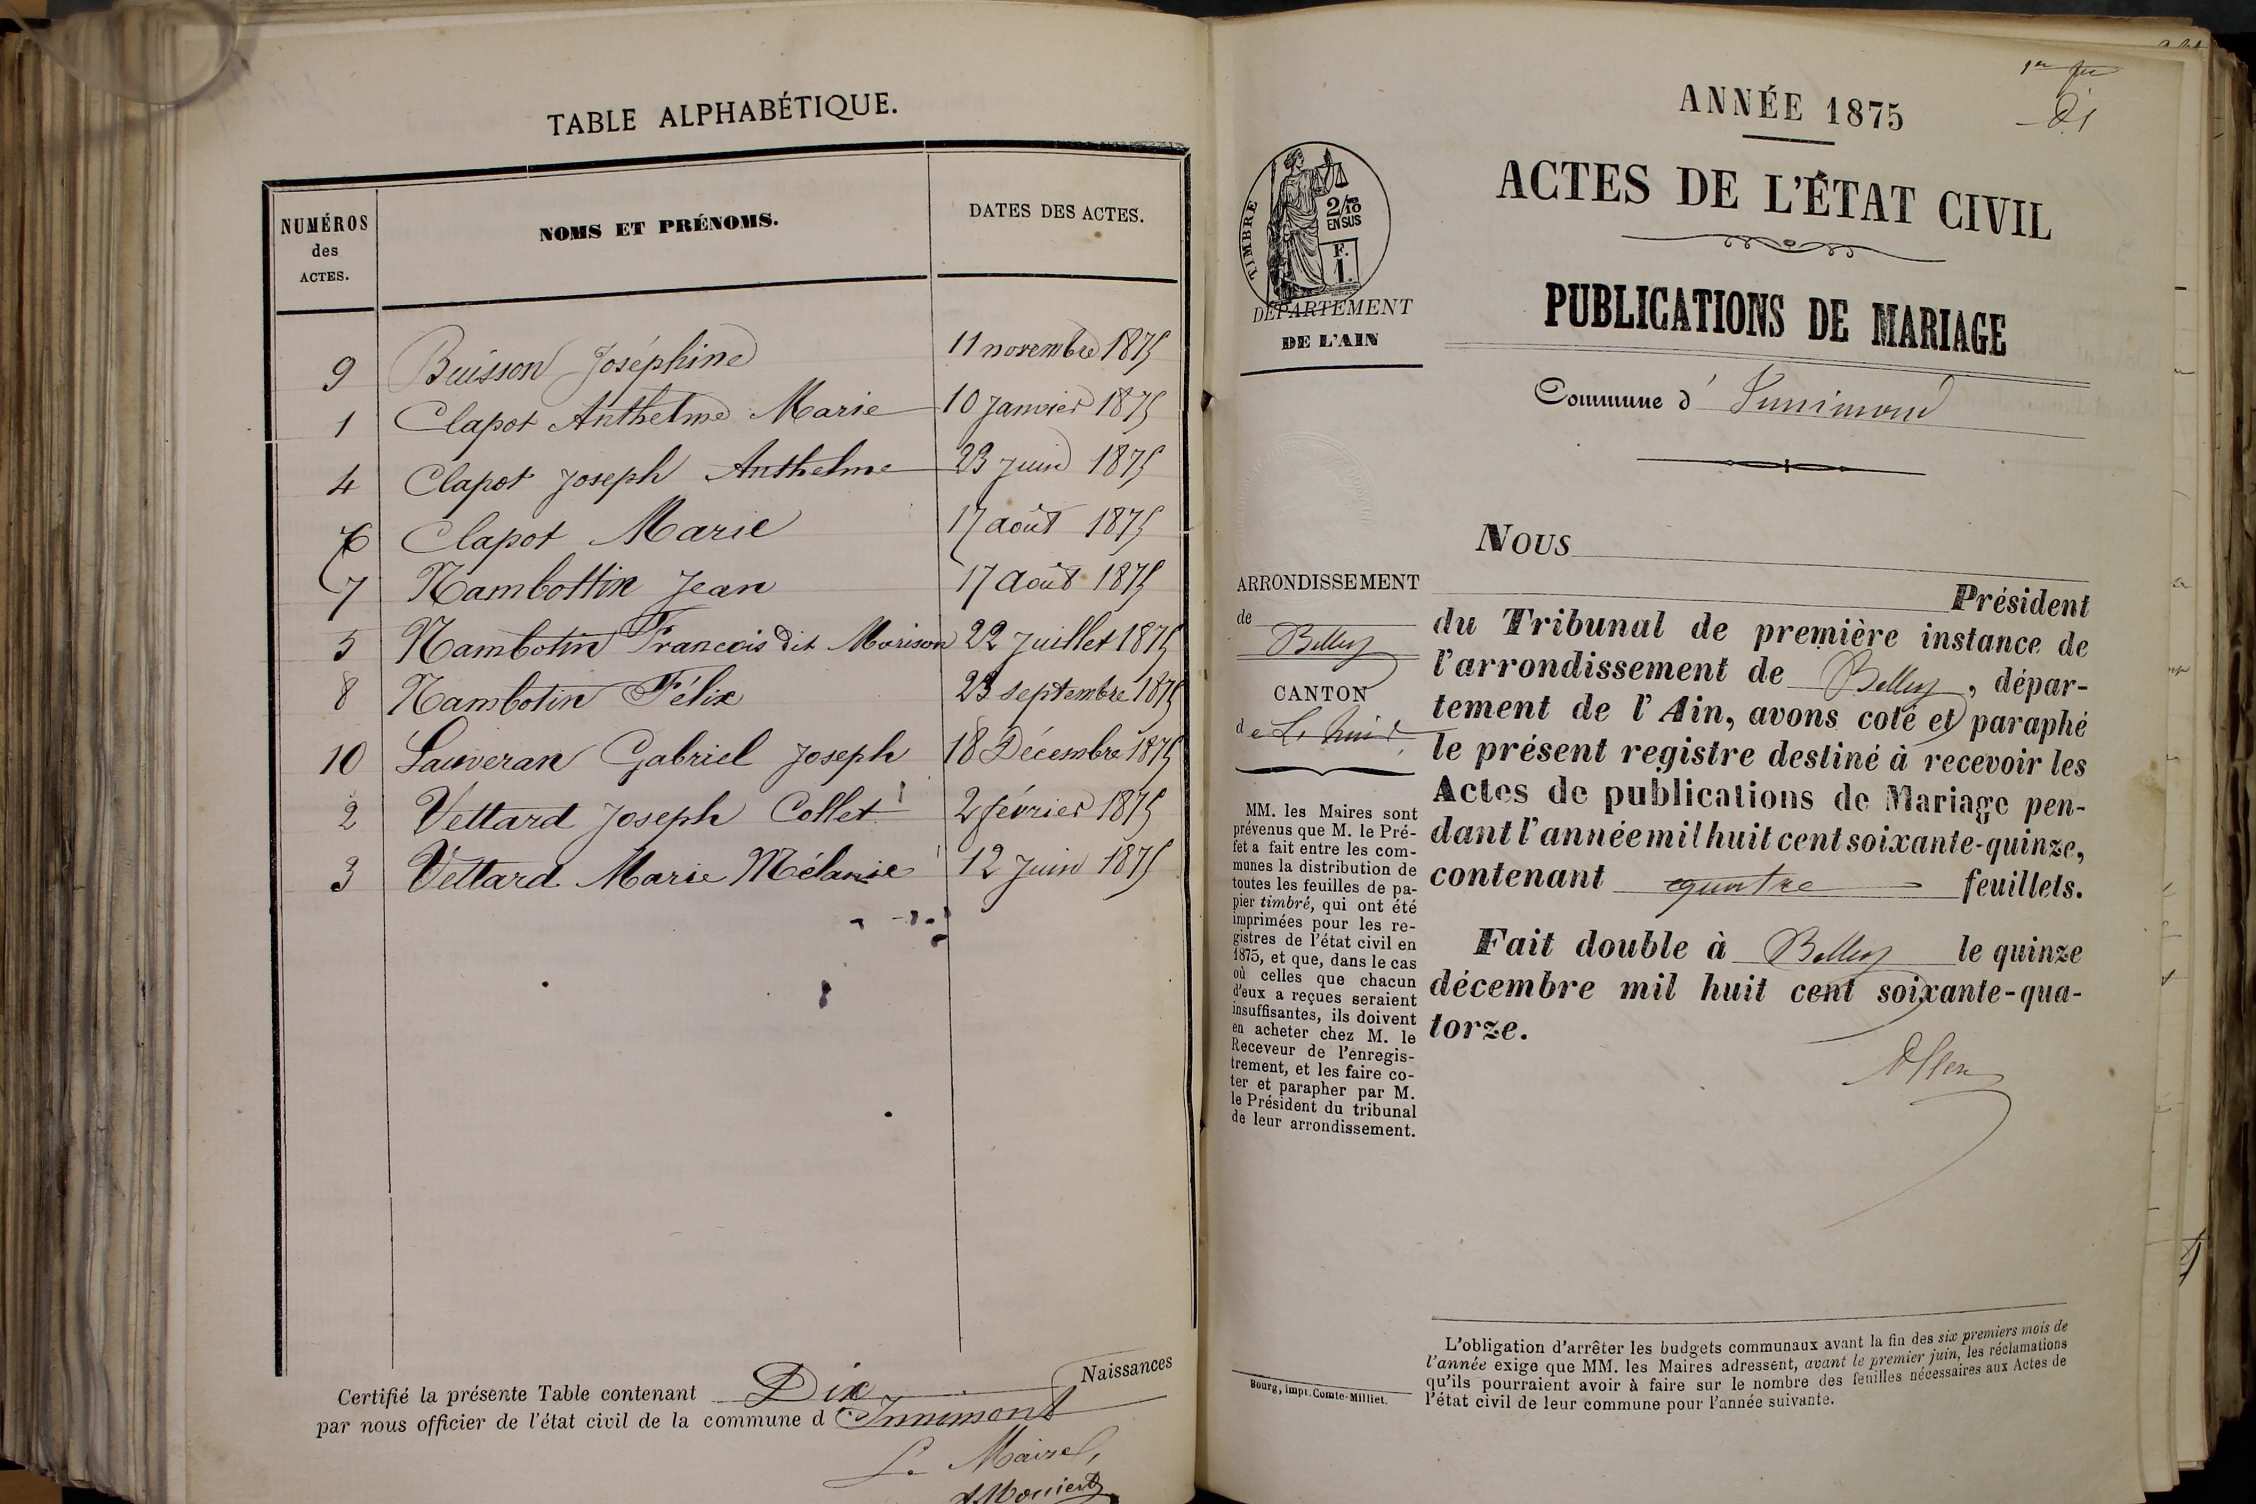 TABLE ALPHABÉTIQUE.
NUMÉROS
des
ACTES.
NOMS ET PRÉNOMS.
DATES DES ACTES.
9 Buisson Joséphine 11 novembre 1875
1 Clapot Anthelme Marie 10 Janvier 1875
4 Clapot Joseph Anthelme 23 Juin 1875
6 Clapot Marie 17 août 1875
7 Nambottin Jean 17 Août 1875
5 Nambotin Francois dit Morison 22 Juillet 1875
8 Nambotin Félix 23 septembre 1875
10 Sauveran Gabriel Joseph 18 Décembre 1875
2 Vettard Joseph Collet 2 février 1875
3 Vettard Marie Mélanie 12 Juin 1875
Certifié la présente Table contenant Dix Naissances
par nous officier de l'état civil de la commune d'Innimont
Le Maire,
1er
ANNÉE 1875
ACTES DE L'ÉTAT CIVIL
PUBLICATIONS DE MARIAGE
Commune d' Innimond
TIMBRE
2/10
EN SUS
F.
1.
DÉPARTEMENT
DE L'AIN
ARRONDISSEMENT
de
Belley
CANTON
de
MM. les Maires sont
prévenus que M. le Pré-
fet a fait entre les com-
munes la distribution de
toutes les feuilles de pa-
pier timbré, qui ont été
imprimées pour les re-
gistres de l'état civil en
1875, et que, dans le cas
où celles que chacun
d'eux a reçues seraient
insuffisantes, ils doivent
en acheter chez M. le
Receveur de l'enregis-
trement, et les faire co-
ter et parapher par M.
le Président du tribunal
de leur arrondissement.
Nous
Président
du Tribunal de première instance de
l'arrondissement de Belley, dépar-
tement de l'Ain, avons coté et paraphé
le présent registre destiné à recevoir les
Actes de publications de Mariage pen-
dant l'année mil huit cent soixante-quinze,
contenant quatre feuillets.
Fait double à Belley le quinze
décembre mil huit cent soixante-qua-
torze.
L'obligation d'arrêter les budgets communaux avant la fin des six premiers mois de
l'année exige que MM. les Maires adressent, avant le premier juin, les réclamations
qu'ils pourraient avoir à faire sur le nombre des feuilles nécessaires aux Actes de
l'état civil de leur commune pour l'année suivante.
Bourg, impr. Comte-Milliet.